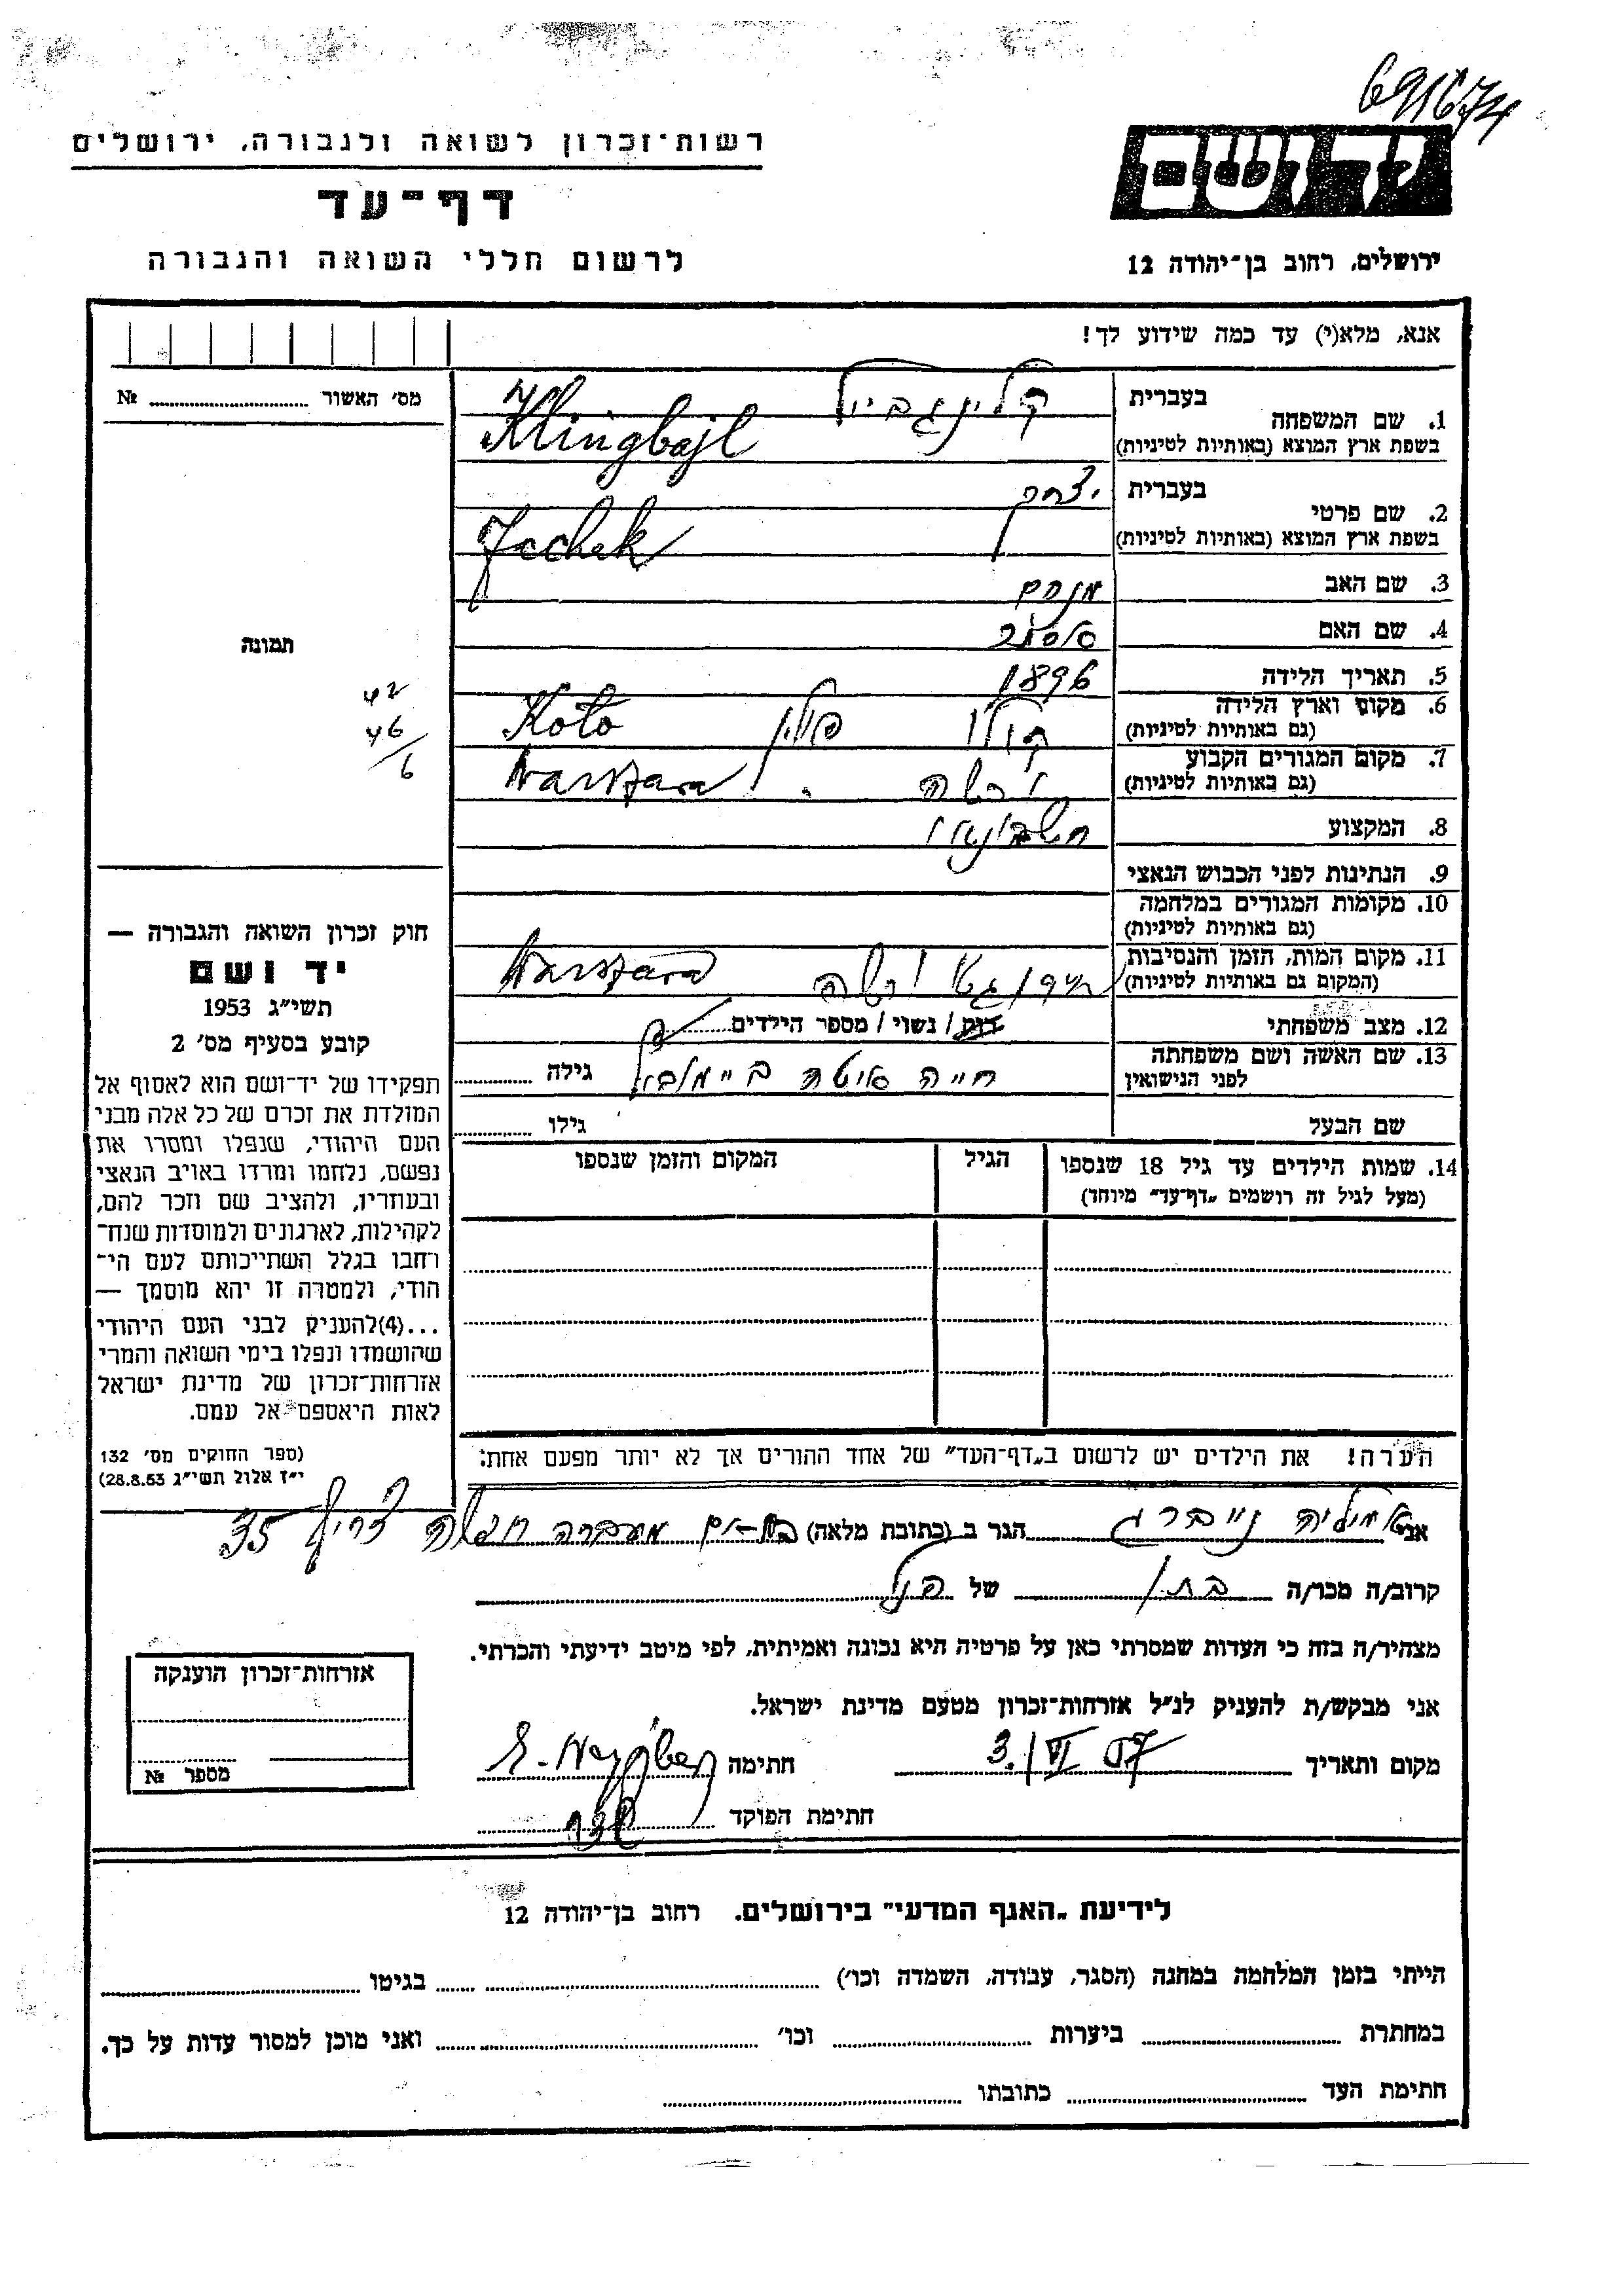 691674
רשות־זכרון לשואה ולגבורה, ירושלים
דף־עד
לרשום חללי השואה והגבורה
יד ושם
ירושלים, רחוב בן־יהודה 12
אנא, מלא(י) עד כמה שידוע לך!
מס׳ האשור № 
1. שם המשפחה בעברית קלינגבייל
בשפת ארץ המוצא (באותיות לטיניות) Klingbajl
2. שם פרטי בעברית יצחק
בשפת ארץ המוצא (באותיות לטיניות)
3. שם האב מנחם
4. שם האם
5. תאריך הלידה 1896
6. מקום וארץ הלידה (גם באותיות לטיניות) קולו פולין Koło
7. מקום המגורים הקבוע (גם באותיות לטיניות) ורשה Warszawa
8. המקצוע
9. הנתינות לפני הכבוש הנאצי
10. מקומות המגורים במלחמה (גם באותיות לטיניות)
11. מקום המות, הזמן והנסיבות (המקום גם באותיות לטיניות) גטו ורשה Warszawa
12. מצב משפחתי רוק / נשוי / מספר הילדים
13. שם האשה ושם משפחתה לפני הנישואין חייה גילה
שם הבעל גילו
14. שמות הילדים עד גיל 18 שנספו (מעל לגיל זה רושמים „דף־עד” מיוחד) הגיל המקום והזמן שנספו
הערה! את הילדים יש לרשום ב„דף־העד” של אחד ההורים אך לא יותר מפעם אחת:
תמונה
42
46
6
חוק זכרון השואה והגבורה —
יד ושם
תשי״ג 1953
קובע בסעיף מס׳ 2
תפקידו של יד־ושם הוא לאסוף אל
המולדת את זכרם של כל אלה מבני
העם היהודי, שנפלו ומסרו את
נפשם, נלחמו ומרדו באויב הנאצי
ובעוזריו, ולהציב שם וזכר להם,
לקהילות, לארגונים ולמוסדות שנח־
רבו בגלל השתייכותם לעם הי־
הודי, ולמטרה זו יהא מוסמך —
...(4)להעניק לבני העם היהודי
שהושמדו ונפלו בימי השואה והמרי
אזרחות־זכרון של מדינת ישראל
לאות היאספם אל עמם.
(ספר החוקים מס׳ 132
י״ז אלול תשי״ג 28.8.53)
אני אמיליה נייברג הגר ב (כתובת מלאה) בת־ים מעברה צריף 35
קרוב/ה מכר/ה בת של הנ״ל
מצהיר/ה בזה כי העדות שמסרתי כאן על פרטיה היא נכונה ואמיתית, לפי מיטב ידיעתי והכרתי.
אני מבקש/ת להעניק לנ״ל אזרחות־זכרון מטעם מדינת ישראל.
מקום ותאריך 3. VI 57 חתימה
חתימת הפוקד
אזרחות־זכרון הוענקה
מספר №
לידיעת „האגף המדעי” בירושלים. רחוב בן־יהודה 12
הייתי בזמן המלחמה במחנה (הסגר, עבודה, השמדה וכו׳) בגיטו
במחתרת ביערות וכו׳ ואני מוכן למסור עדות על כך.
חתימת העד כתובתו